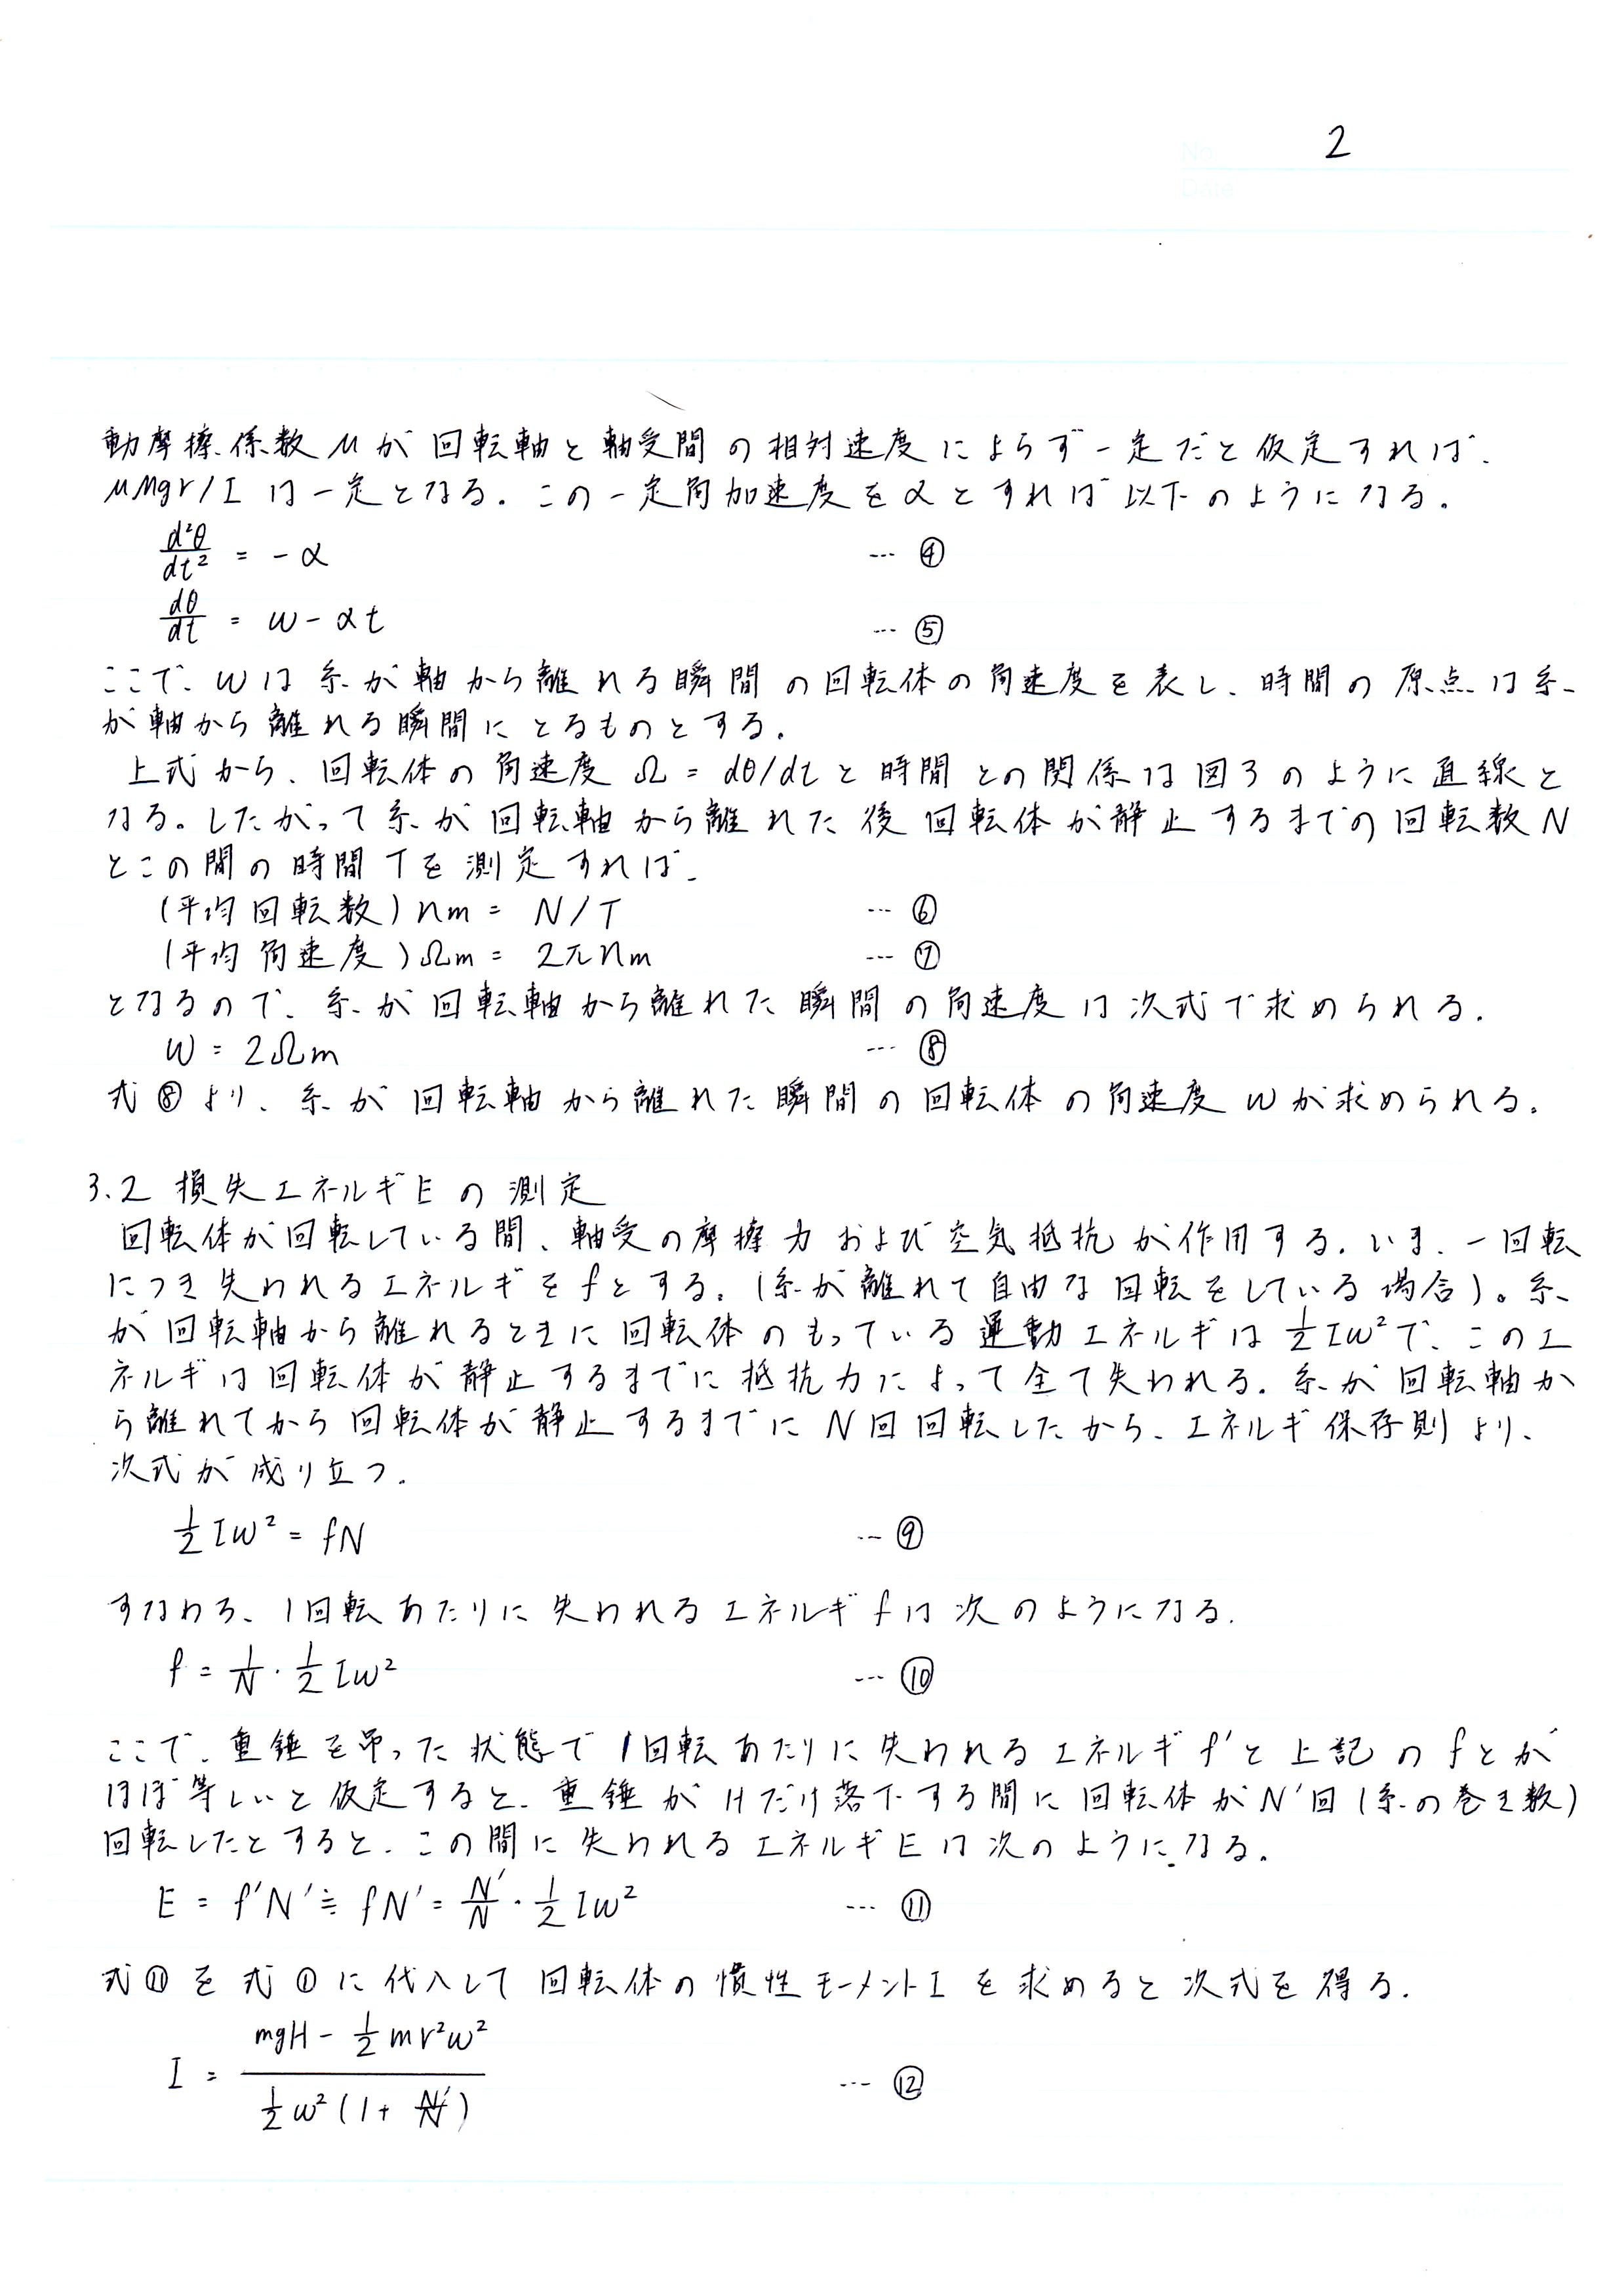 No. 2
Date
動摩擦係数μが回転軸と軸受間の相対速度によらず一定だと仮定すれば、
μMgr/Iは一定となる。この一定角加速度をαとすれば以下のようになる。
d²θ/dt² = -α … ④
dθ/dt = ω - αt … ⑤
ここで、ωは糸が軸から離れる瞬間の回転体の角速度を表し、時間の原点は糸
が軸から離れる瞬間にとるものとする。
上式から、回転体の角速度Ω = dθ/dtと時間との関係は図3のように直線と
なる。したがって糸が回転軸から離れた後回転体が静止するまでの回転数N
とこの間の時間Tを測定すれば、
(平均回転数) nm = N/T … ⑥
(平均角速度) Ωm = 2πnm … ⑦
となるので、糸が回転軸から離れた瞬間の角速度は次式で求められる。
ω = 2Ωm … ⑧
式⑧より、糸が回転軸から離れた瞬間の回転体の角速度ωが求められる。
3.2 損失エネルギEの測定
回転体が回転している間、軸受の摩擦力および空気抵抗が作用する。いま、一回転
につき失われるエネルギをfとする。(糸が離れて自由な回転をしている場合)。糸
が回転軸から離れるときに回転体のもっている運動エネルギは½Iω²で、このエ
ネルギは回転体が静止するまでに抵抗力によって全て失われる。糸が回転軸か
ら離れてから回転体が静止するまでにN回回転したから、エネルギ保存則より、
次式が成り立つ。
½Iω² = fN … ⑨
すなわち、1回転あたりに失われるエネルギfは次のようになる。
f = 1/N・½Iω² … ⑩
ここで、重錘を吊った状態で1回転あたりに失われるエネルギf'と上記のfとが
ほぼ等しいと仮定すると、重錘がHだけ落下する間に回転体がN'回(糸の巻き数)
回転したとすると、この間に失われるエネルギEは次のようになる。
E = f'N' ≒ fN' = N'/N・½Iω² … ⑪
式⑪を式①に代入して回転体の慣性モーメントIを求めると次式を得る。
I = (mgH - ½mr²ω²) / (½ω²(1 + N'/N)) … ⑫